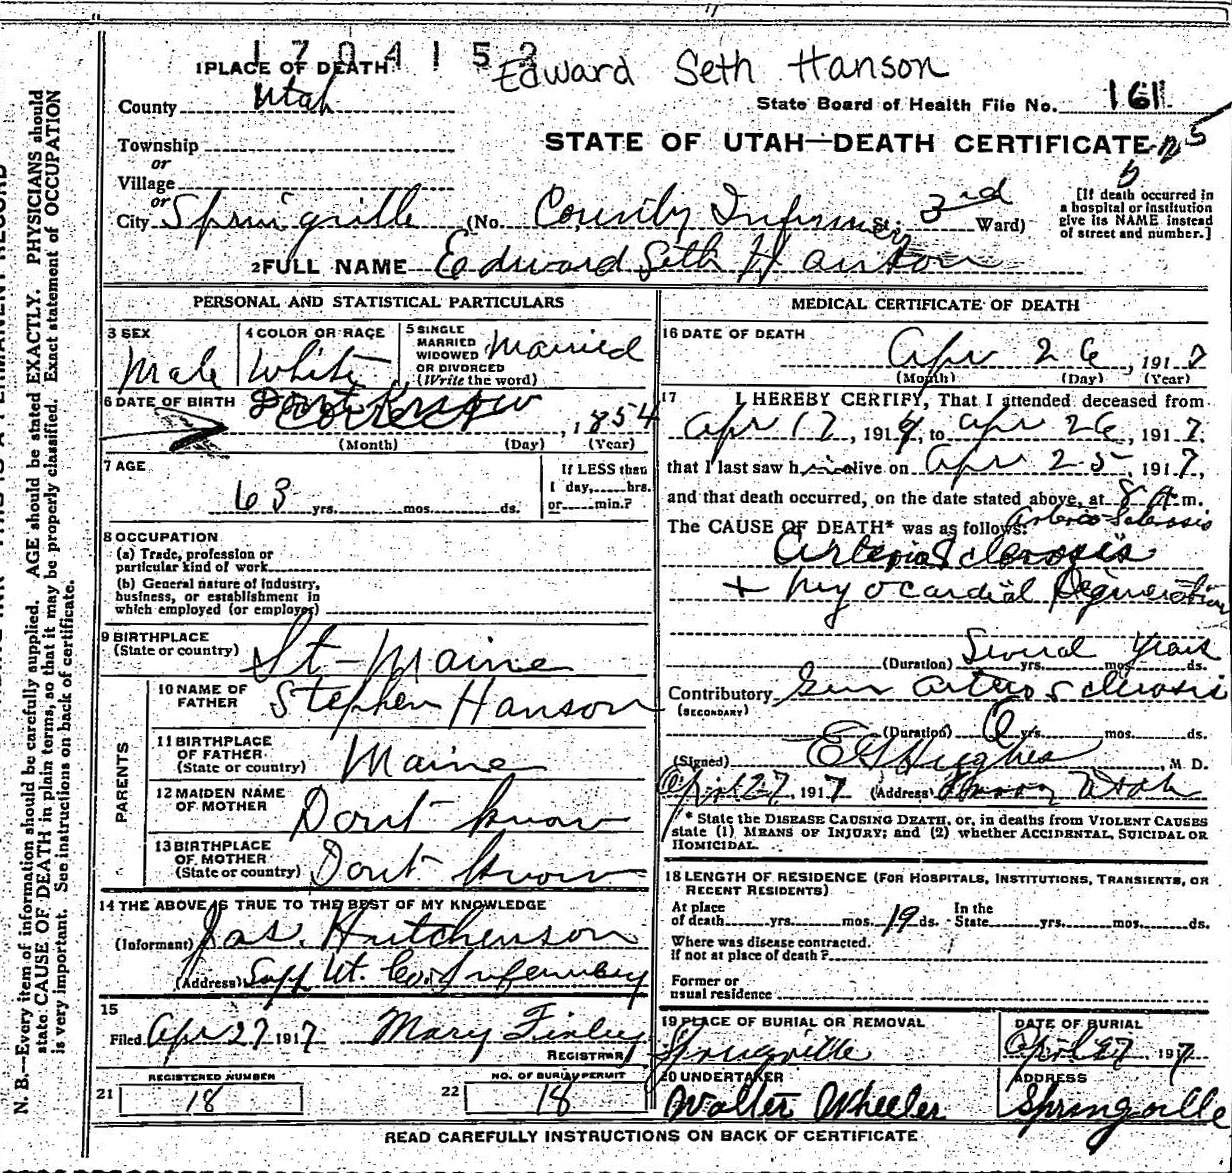 1704152
Edward Seth Hanson
1 PLACE OF DEATH
County Utah
State Board of Health File No. 161
STATE OF UTAH—DEATH CERTIFICATE
Township
or
Village
or
City Springville (No. County Infirmary St. 3rd Ward)
[If death occurred in
a hospital or institution
give its NAME instead
of street and number.]
2 FULL NAME Edward Seth Hanson
PERSONAL AND STATISTICAL PARTICULARS
3 SEX
Male
4 COLOR OR RACE
White
5 SINGLE
MARRIED
WIDOWED
OR DIVORCED
(Write the word)
Married
6 DATE OF BIRTH Dont Know
Correct
, 1854
(Month) (Day) (Year)
7 AGE
63 yrs. mos. ds.
If LESS than
1 day, hrs.
or min.?
8 OCCUPATION
(a) Trade, profession or
particular kind of work
(b) General nature of industry,
business, or establishment in
which employed (or employer)
9 BIRTHPLACE
(State or country)
St-Maine
PARENTS
10 NAME OF
FATHER
Stephen Hanson
11 BIRTHPLACE
OF FATHER
(State or country)
Maine
12 MAIDEN NAME
OF MOTHER
Dont know
13 BIRTHPLACE
OF MOTHER
(State or country)
Dont know
14 THE ABOVE IS TRUE TO THE BEST OF MY KNOWLEDGE
(Informant) Jas. Hutchenson
(Address) Supp Ut. Co. Infermery
15
Filed Apr 27 1917 Mary Finley
REGISTRAR
REGISTERED NUMBER
21 18
NO. OF BURIAL PERMIT
22 18
MEDICAL CERTIFICATE OF DEATH
16 DATE OF DEATH
Apr 26, 1917
(Month) (Day) (Year)
17 I HEREBY CERTIFY, That I attended deceased from
Apr 17, 191 , to Apr 26, 1917,
that I last saw him alive on Apr 25, 1917,
and that death occurred, on the date stated above, at 8 A m.
The CAUSE OF DEATH* was as follows:
Arterio Sclerosis
Arterio Sclerosis
+ Myocardial Degeneration
Several Years
(Duration) yrs. mos. ds.
Contributory Gen Arterio Sclerosis
(SECONDARY)
(Duration) yrs. mos. ds.
(Signed) E G Hughes, M. D.
April 27, 1917 (Address) Utah
* State the DISEASE CAUSING DEATH, or, in deaths from VIOLENT CAUSES
state (1) MEANS OF INJURY; and (2) whether ACCIDENTAL, SUICIDAL OR
HOMICIDAL.
18 LENGTH OF RESIDENCE (FOR HOSPITALS, INSTITUTIONS, TRANSIENTS, OR
RECENT RESIDENTS)
At place
of death yrs. mos. 19 ds.
In the
State yrs. mos. ds.
Where was disease contracted,
if not at place of death?
Former or
usual residence
19 PLACE OF BURIAL OR REMOVAL
Springville
DATE OF BURIAL
April 27 1917
20 UNDERTAKER
Walter Wheeler
ADDRESS
Springville
READ CAREFULLY INSTRUCTIONS ON BACK OF CERTIFICATE
N. B.—Every item of information should be carefully supplied. AGE should be stated EXACTLY. PHYSICIANS should
state CAUSE OF DEATH in plain terms, so that it may be properly classified. Exact statement of OCCUPATION
is very important. See instructions on back of certificate.